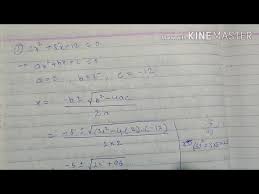 Made with KINEMASTER
① 2x² + 5x - 12 = 0
→ ax² + bx + c = 0
a = 2, b = 5, c = -12
x = -b ± √b² - 4ac / 2a
= -5 ± √(5)² - 4(2)·(-12) / 2×2
-5 ± √25 + 96